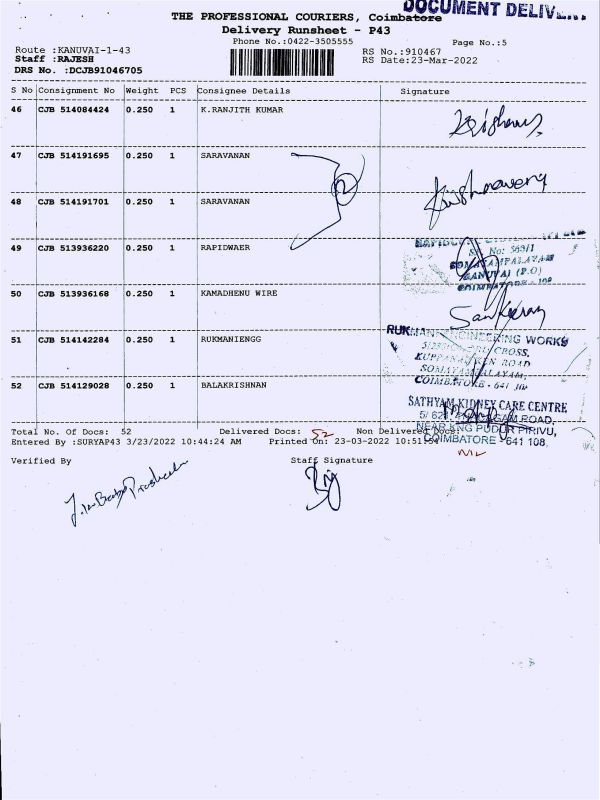 DOCUMENT DELIV
THE PROFESSIONAL COURIERS, Coimbatore
Delivery Runsheet - P43
Phone No.:0422-3505555
Page No.:5
Route :KANUVAI-1-43
RS No.:910467
Staff :RAJESH
RS Date:23-Mar-2022
DRS No. :DCJB91046705
S No Consignment No Weight PCS Consignee Details Signature
46 CJB 514084424 0.250 1 K.RANJITH KUMAR
47 CJB 514191695 0.250 1 SARAVANAN
2
48 CJB 514191701 0.250 1 SARAVANAN
49 CJB 513936220 0.250 1 RAPIDWAER
No: 569/1
SOMAYAMPALAYAM
KANUVAI (P.O)
COIMBATORE - 108
50 CJB 513936168 0.250 1 KAMADHENU WIRE
51 CJB 514142284 0.250 1 RUKMANIENGG
RUKMANI ENGINEERING WORKS
CROSS,
ROAD
SOMAYAMPALAYAM,
COIMBATORE - 641 108
52 CJB 514129028 0.250 1 BALAKRISHNAN
SATHYAM KIDNEY CARE CENTRE
ROAD,
NEAR KNG PUDUR PIRIVU,
COIMBATORE - 641 108.
Total No. Of Docs: 52 Delivered Docs: 52 Non Delivered Docs: NIL
Entered By :SURYAP43 3/23/2022 10:44:24 AM Printed On: 23-03-2022 10:51:54
Verified By Staff Signature